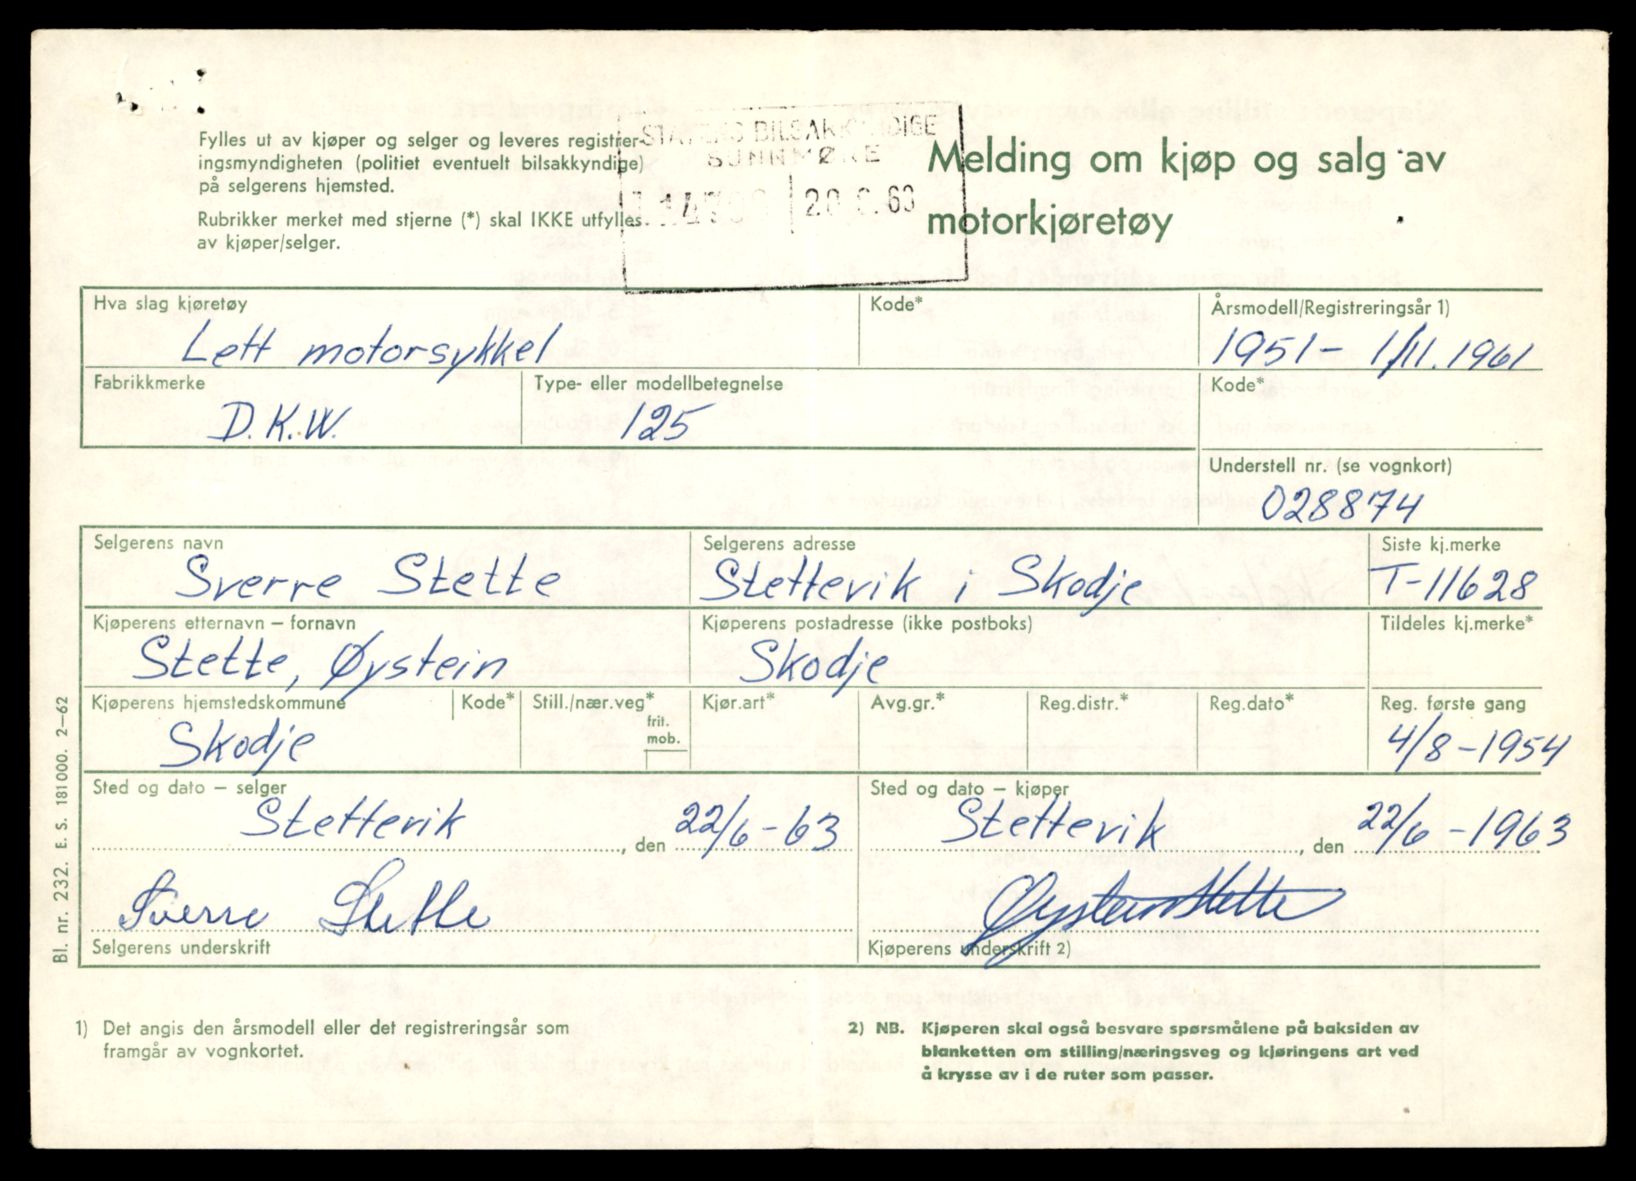 Fylles ut av kjøper og selger og leveres registrer-
ingsmyndigheten (politiet eventuelt bilsakkyndige)
på selgerens hjemsted.
Rubrikker merket med stjerne (*) skal IKKE utfylles
av kjøper/selger.
STATENS BILSAKKYNDIGE
SUNNMØRE
Melding om kjøp og salg av
motorkjøretøy
Hva slag kjøretøy
Kode*
Årsmodell/Registreringsår 1)
Lett motorsykkel
1951 - 1/11.1961
Fabrikkmerke
Type- eller modellbetegnelse
Kode*
D.K.W.
125
Understell nr. (se vognkort)
028874
Selgerens navn
Selgerens adresse
Siste kj.merke
Sverre Stette
Stettevik i Skodje
T-11628
Kjøperens etternavn – fornavn
Kjøperens postadresse (ikke postboks)
Tildeles kj.merke*
Stette, Øystein
Skodje
Kjøperens hjemstedskommune
Kode*
Still./nær.veg*
fril.
mob.
Kjør.art*
Avg.gr.*
Reg.distr.*
Reg.dato*
Reg. første gang
Skodje
4/8-1954
Sted og dato – selger
Sted og dato – kjøper
Stettevik, den 22/6-63
Stettevik, den 22/6-1963
Sverre Stette
Øystein Stette
Selgerens underskrift
Kjøperens underskrift 2)
Bl. nr. 232. E. S. 181 000. 2–62
1) Det angis den årsmodell eller det registreringsår som
framgår av vognkortet.
2) NB. Kjøperen skal også besvare spørsmålene på baksiden av
blanketten om stilling/næringsveg og kjøringens art ved
å krysse av i de ruter som passer.